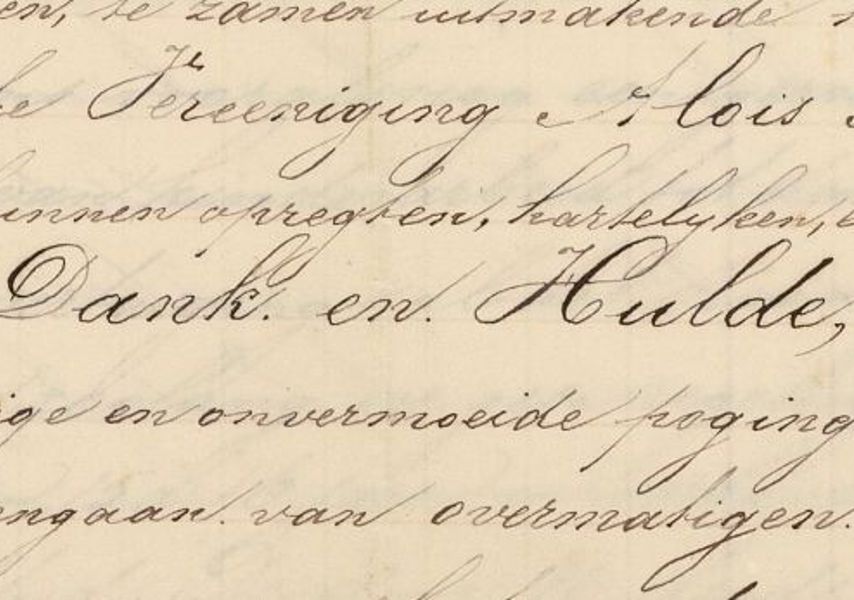 en, te zamen uitmakende
Vereeniging Alois
innen opregten, hartelyken,
Dank en Hulde,
ige en onvermoeide poging
engaan van overmatigen